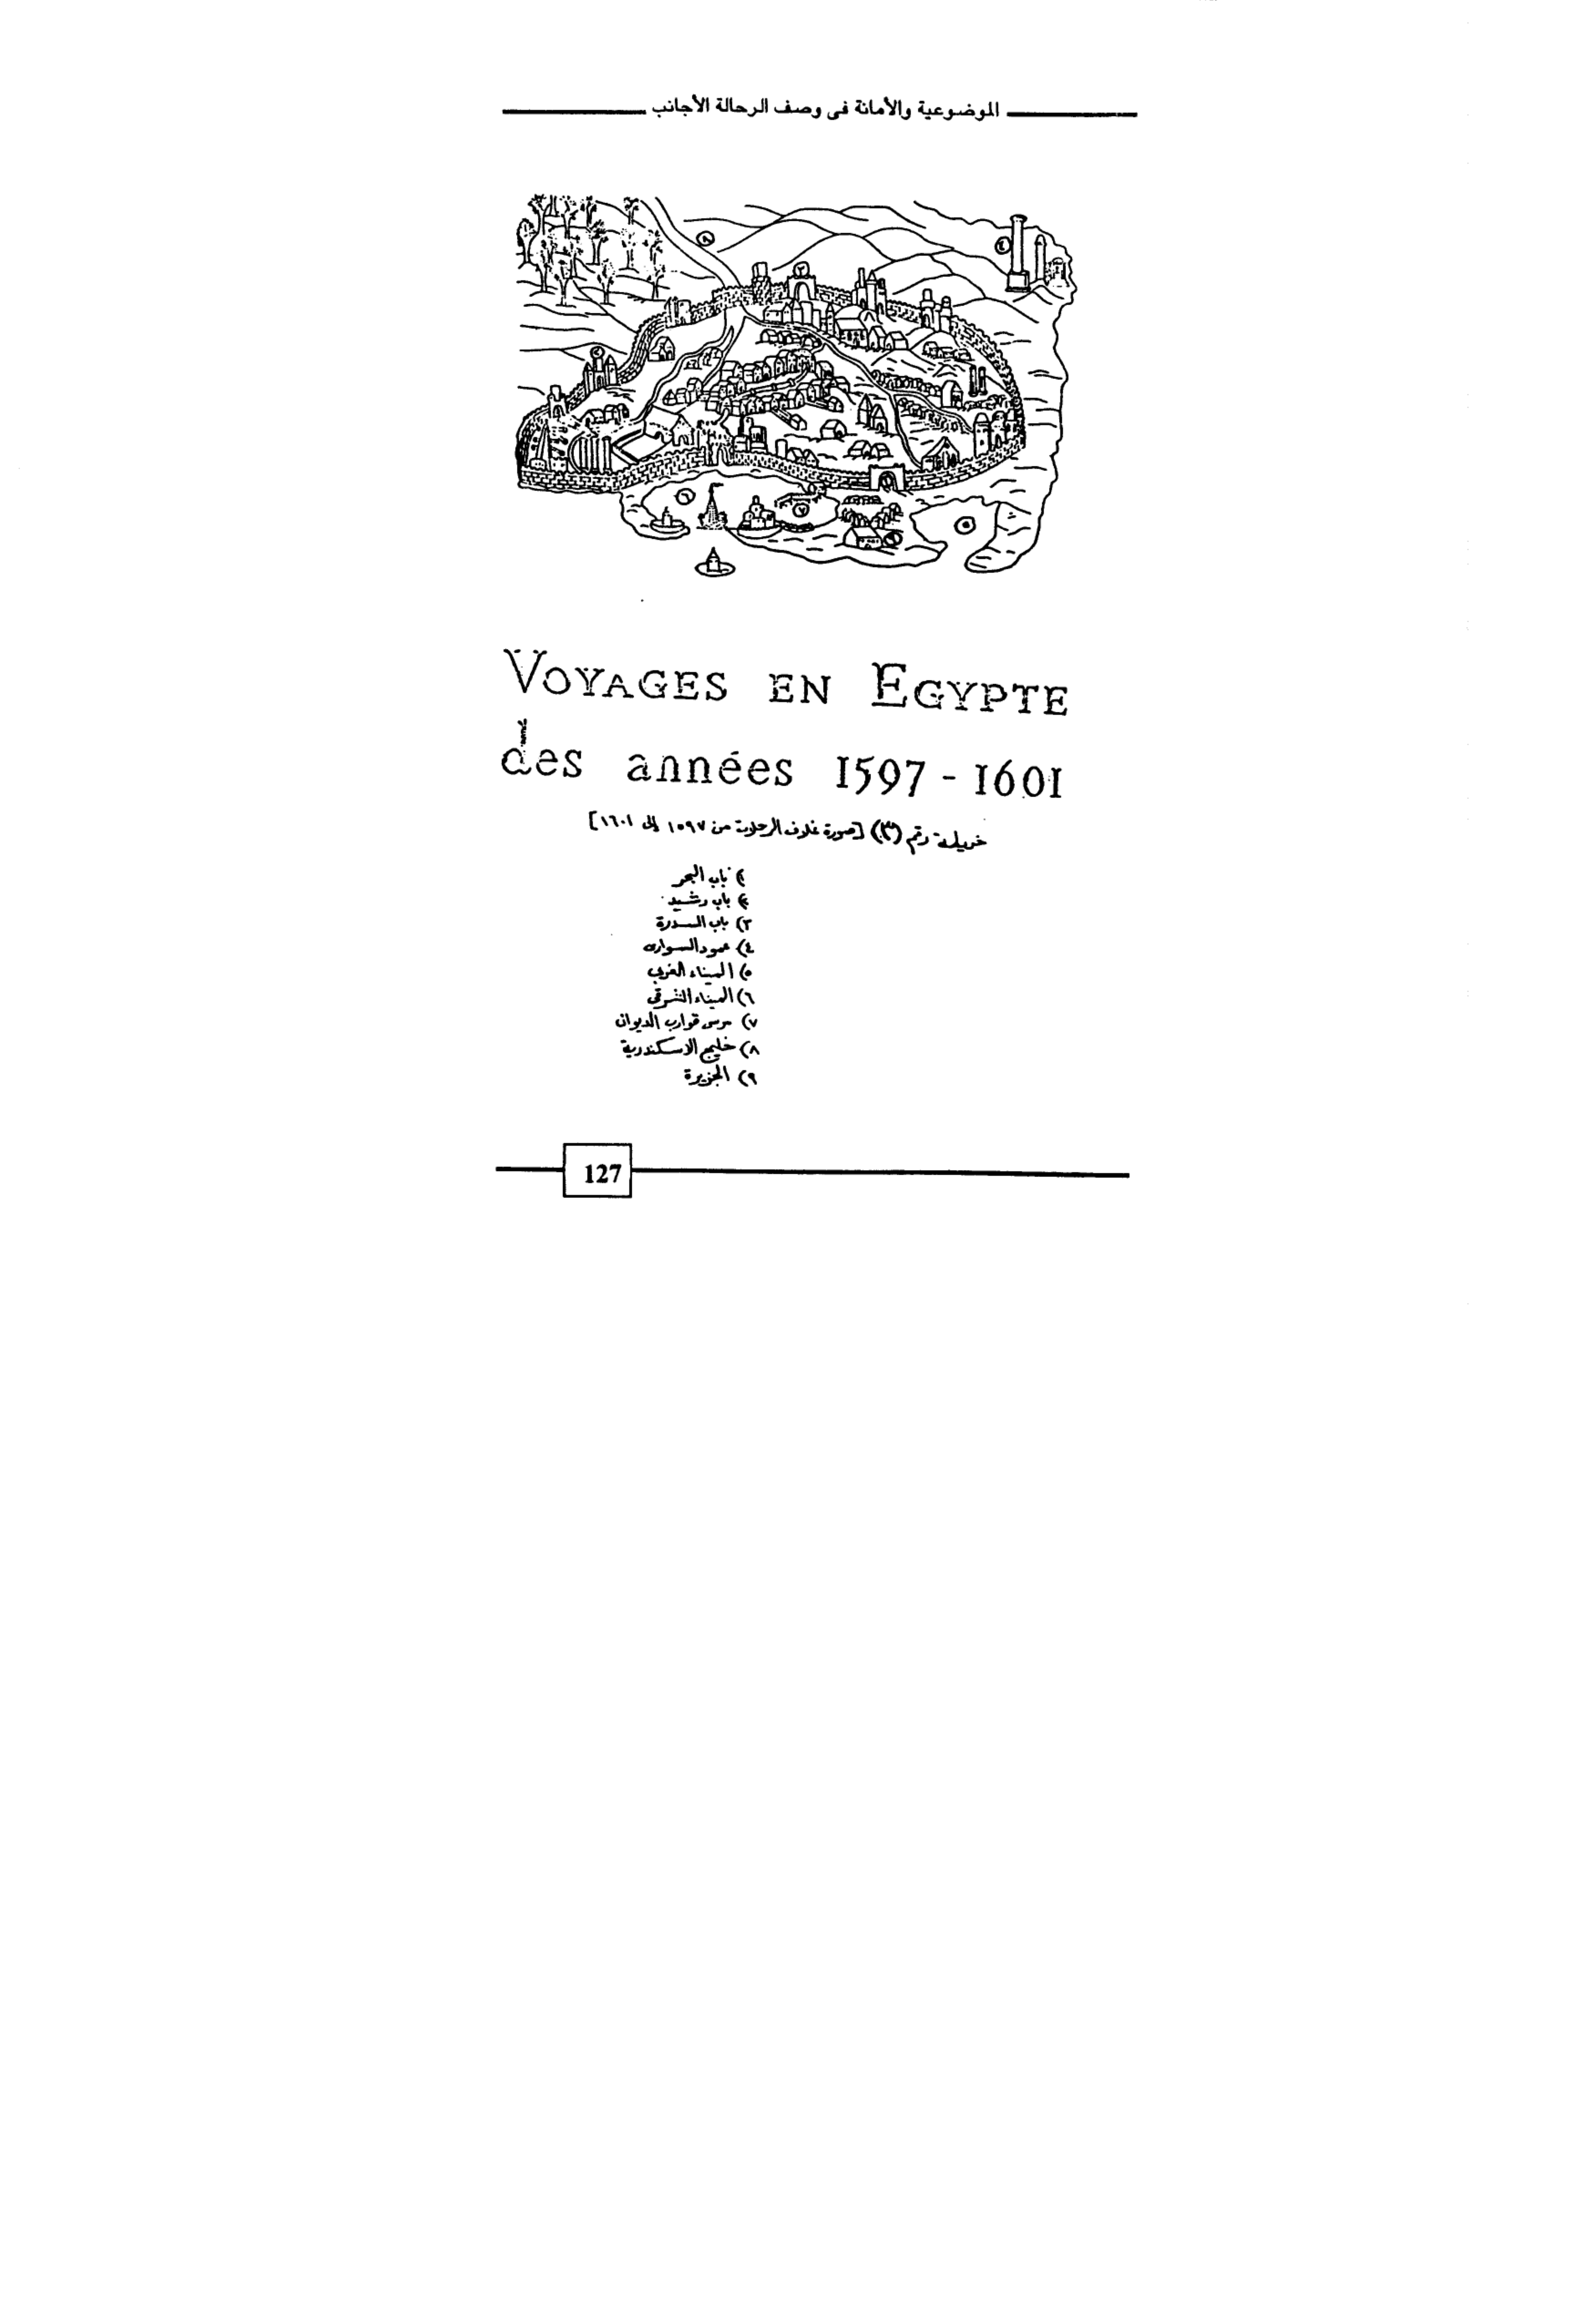 الموضوعية والأمانة فى وصف الرحالة الأجانب
VOYAGES EN EGYPTE
des années 1597 - 1601
خريطة رقم (٣) [صورة غلاف الرحلات من ١٥٩٧ إلى ١٦٠١]
١) باب البحر
٢) باب رشيد
٣) باب السدرة
٤) عمود السوارى
٥) الميناء الغربى
٦) الميناء الشرقى
٧) مرسى قوارب الديوان
٨) خليج الاسكندرية
٩) الجزيرة
127